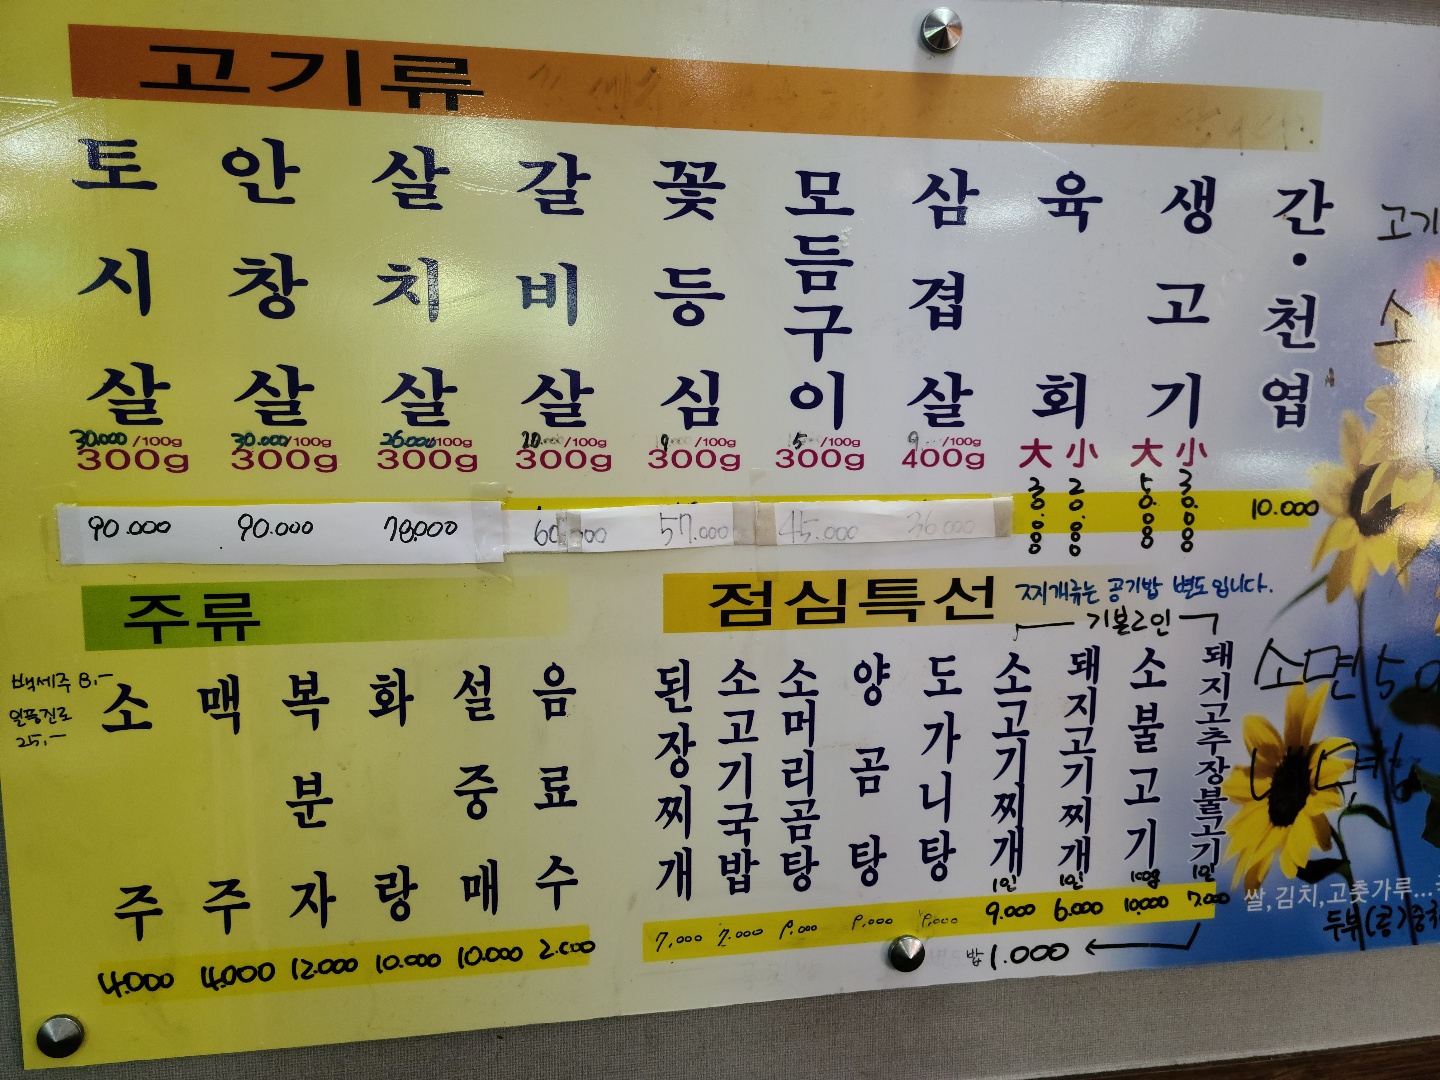 고기류
토시살 30.000/100g 300g 90.000
안창살 30.000/100g 300g 90.000
살치살 26.000/100g 300g 78.000
갈비살 /100g 300g 60.000
꽃등심 /100g 300g 57.000
모듬구이 /100g 300g 45.000
삼겹살 /100g 400g 36.000
육회 大 30.000 小 20.000
생고기 大 50.000 小 30.000
간·천엽 10.000
고기
주류
백세주 8.-
일품진로
25.-
소주 4.000
맥주 4.000
복분자 12.000
화랑 10.000
설중매 10.000
음료수 2.000
점심특선 찌개류는 공기밥 별도입니다.
기본2인
된장찌개 7.000
소고기국밥 7.000
소머리곰탕 9.000
양곰탕 9.000
도가니탕 9.000
소고기찌개 1인 9.000
돼지고기찌개 1인 6.000
소불고기 10.000
돼지고추장불고기 1인 7.000
밥 1.000
소면 5
쌀,김치,고춧가루...
두부(콩)